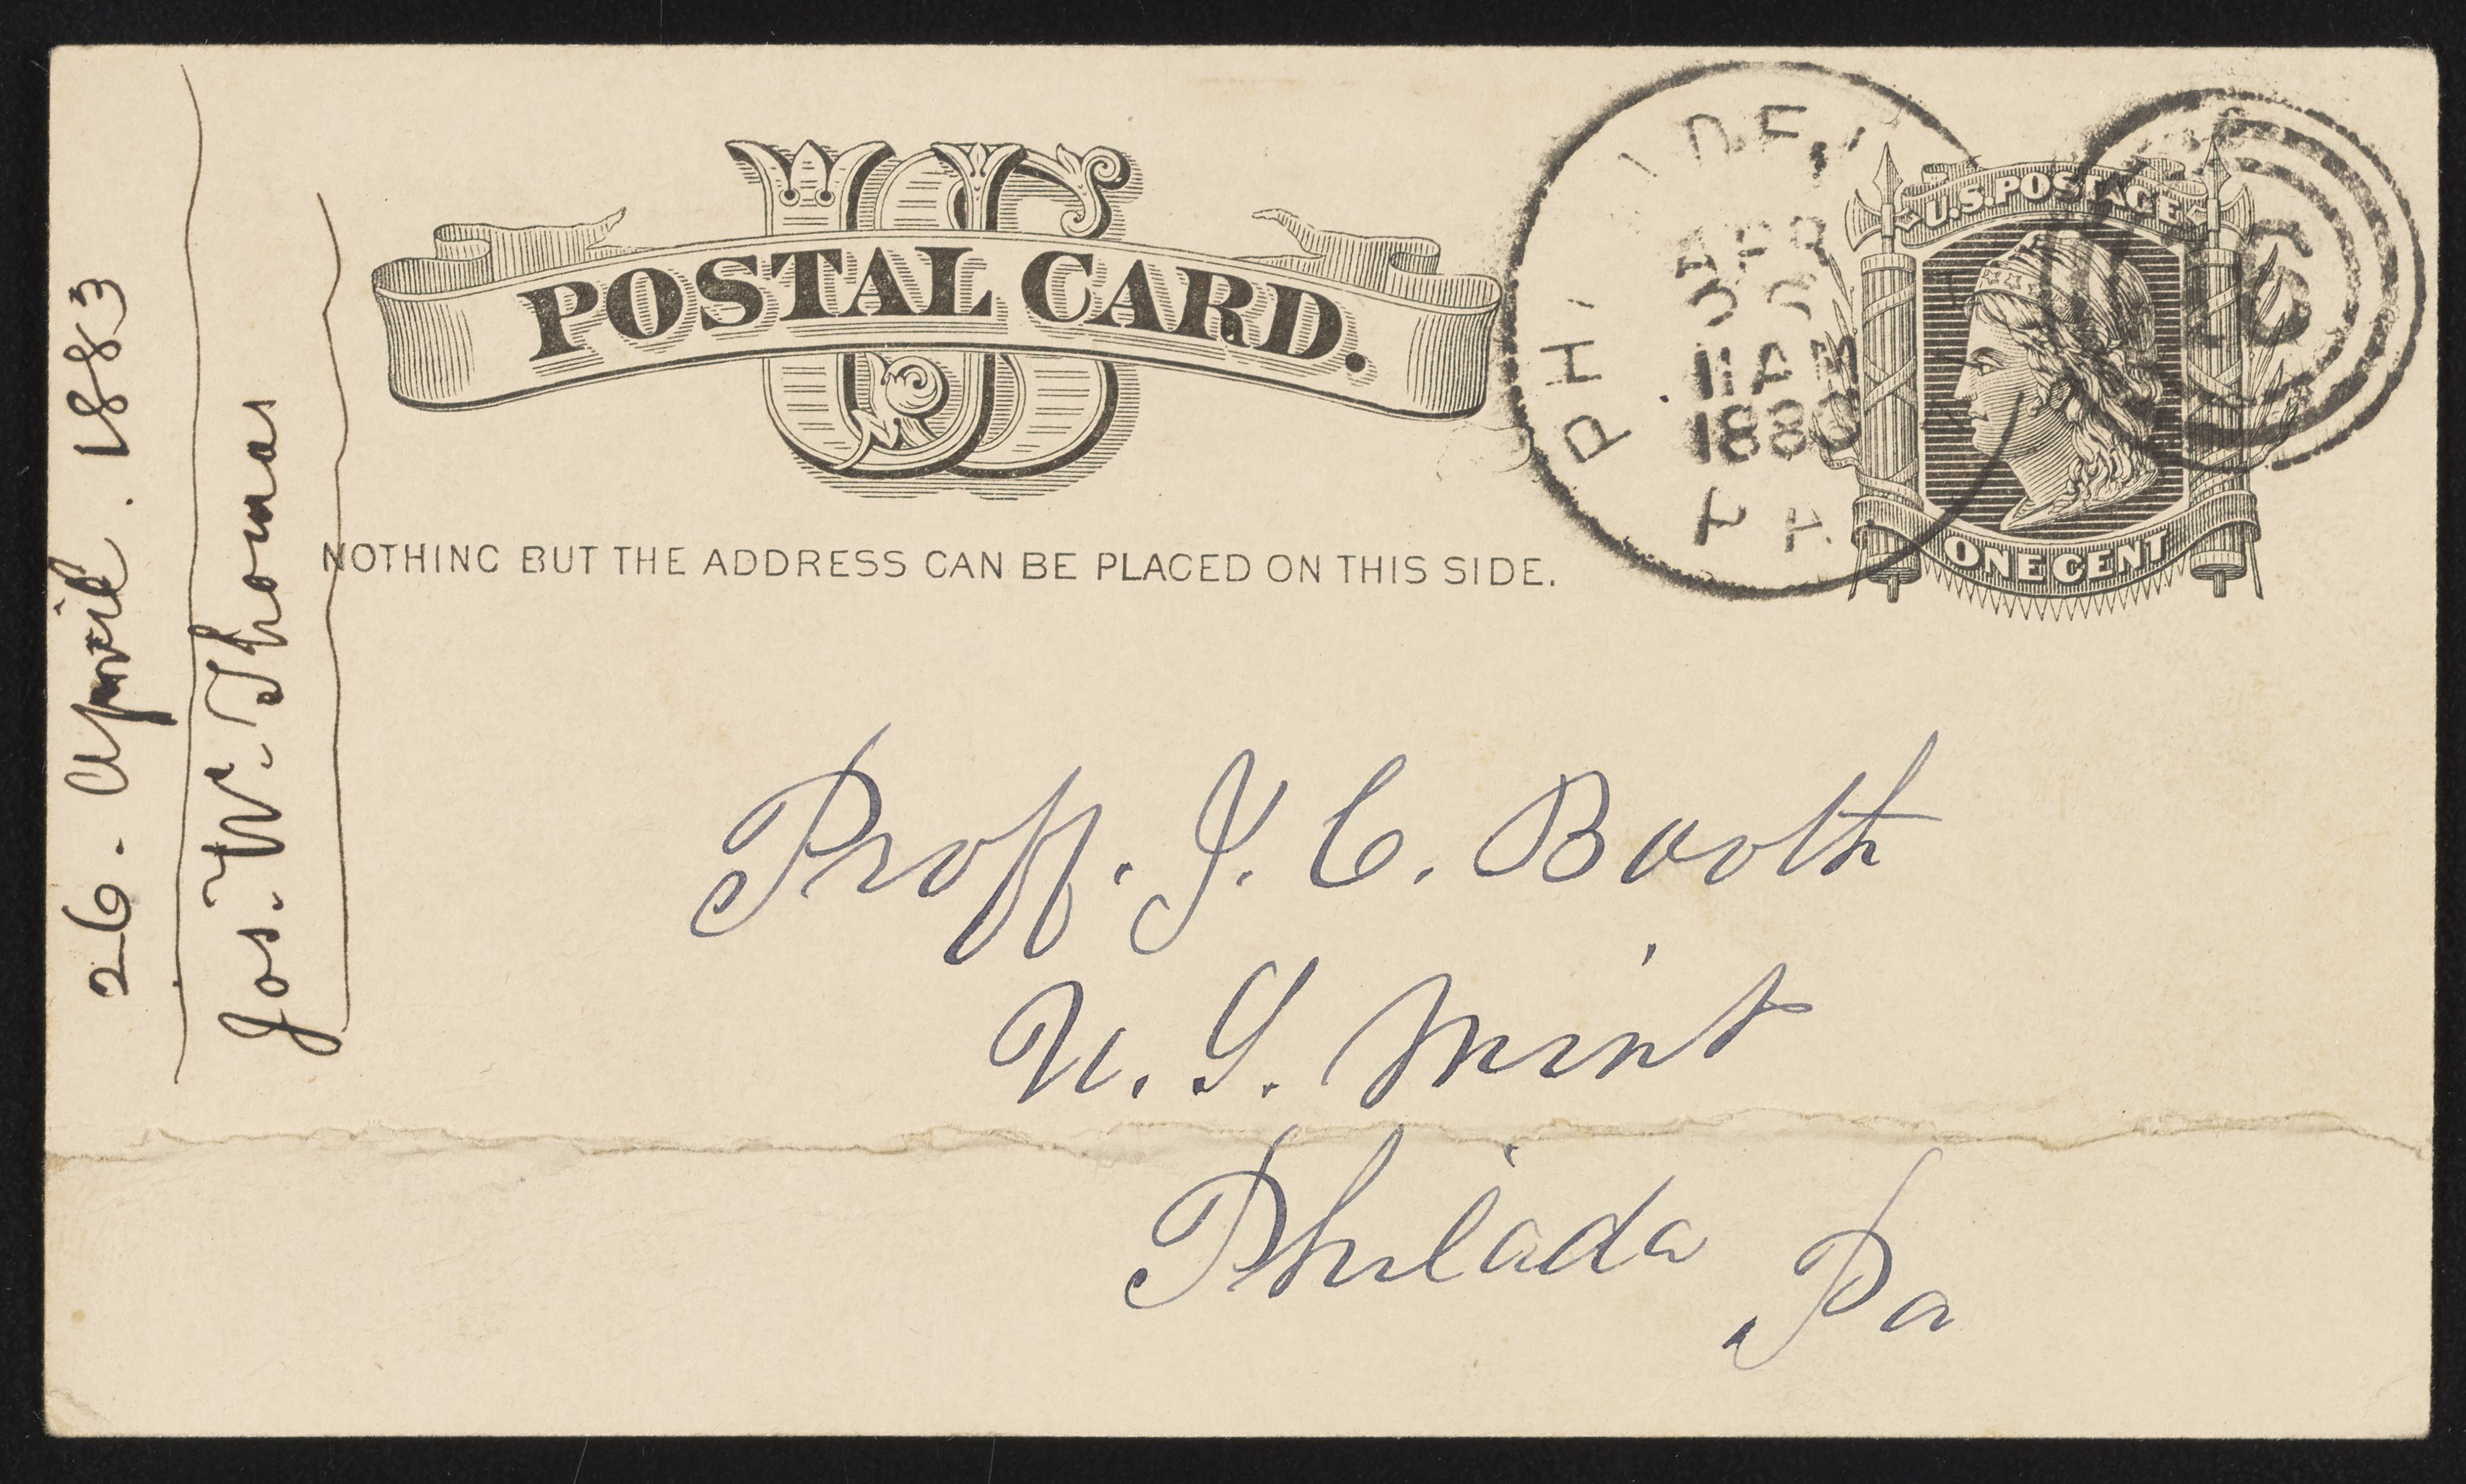 26. April. 1883
Jos. W. Thomas
US
POSTAL CARD.
NOTHING BUT THE ADDRESS CAN BE PLACED ON THIS SIDE.
APR
11 AM
PA
U.S. POSTAGE
ONE CENT
Proff. J. C. Booth
U. S. Mint
Philada Pa